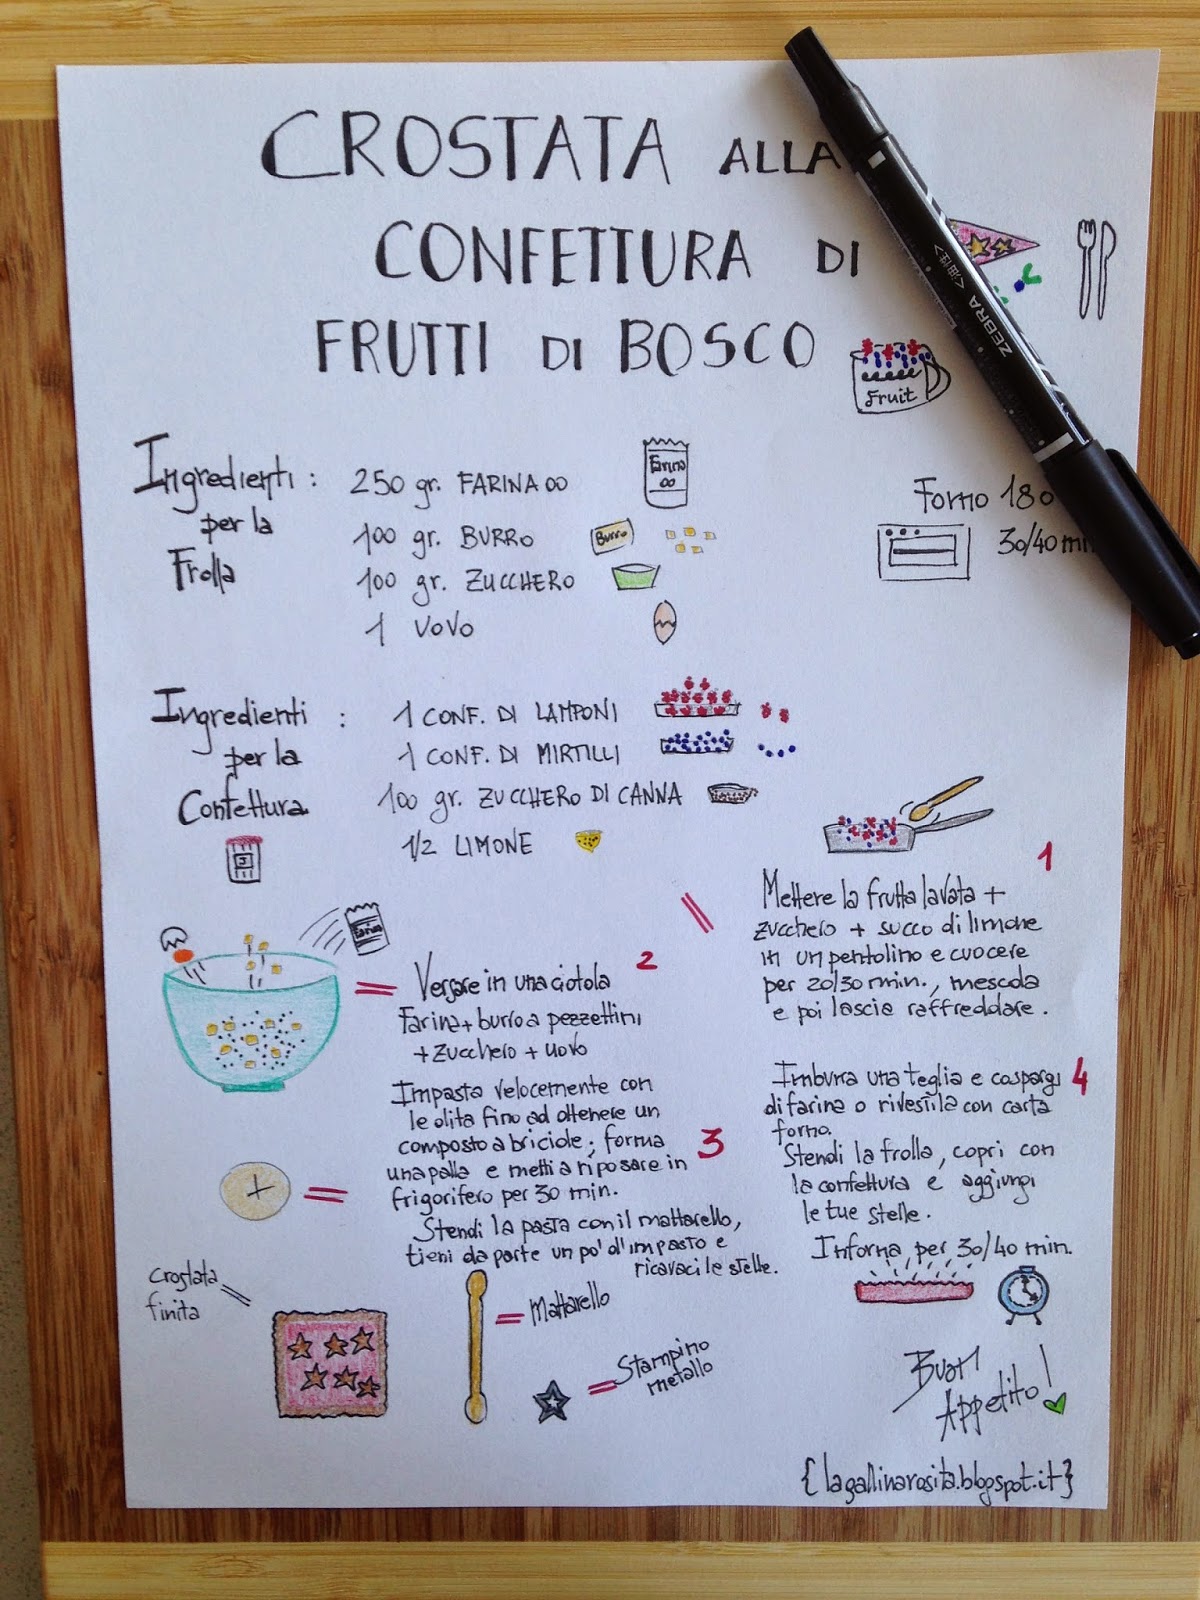 CROSTATA ALLA
CONFETTURA DI
FRUTTI DI BOSCO
Fruit
ZEBRA <油性>
Ingredienti :
per la
Frolla
250 gr. FARINA 00
100 gr. BURRO
100 gr. ZUCCHERO
1 UOVO
Farina
00
Burro
Forno 180
30/40 min
Ingredienti :
per la
Confettura
1 CONF. DI LAMPONI
1 CONF. DI MIRTILLI
100 gr. ZUCCHERO DI CANNA
1/2 LIMONE
1
Mettere la frutta lavata +
zucchero + succo di limone
in un pentolino e cuocere
per 20/30 min., mescola
e poi lascia raffreddare.
Farina
2
Versare in una ciotola
Farina + burro a pezzettini
+ zucchero + uovo
3
Impasta velocemente con
le dita fino ad ottenere un
composto a briciole; forma
una palla e metti a riposare in
frigorifero per 30 min.
Stendi la pasta con il mattarello,
tieni da parte un po' d'impasto e
ricavaci le stelle.
4
Imburra una teglia e cospargi
di farina o rivestila con carta
forno.
Stendi la frolla, copri con
la confettura e aggiungi
le tue stelle.
Inforna per 30/40 min.
Crostata
finita
Mattarello
Stampino
metallo
Buon
Appetito!
{lagallinarosita.blogspot.it}